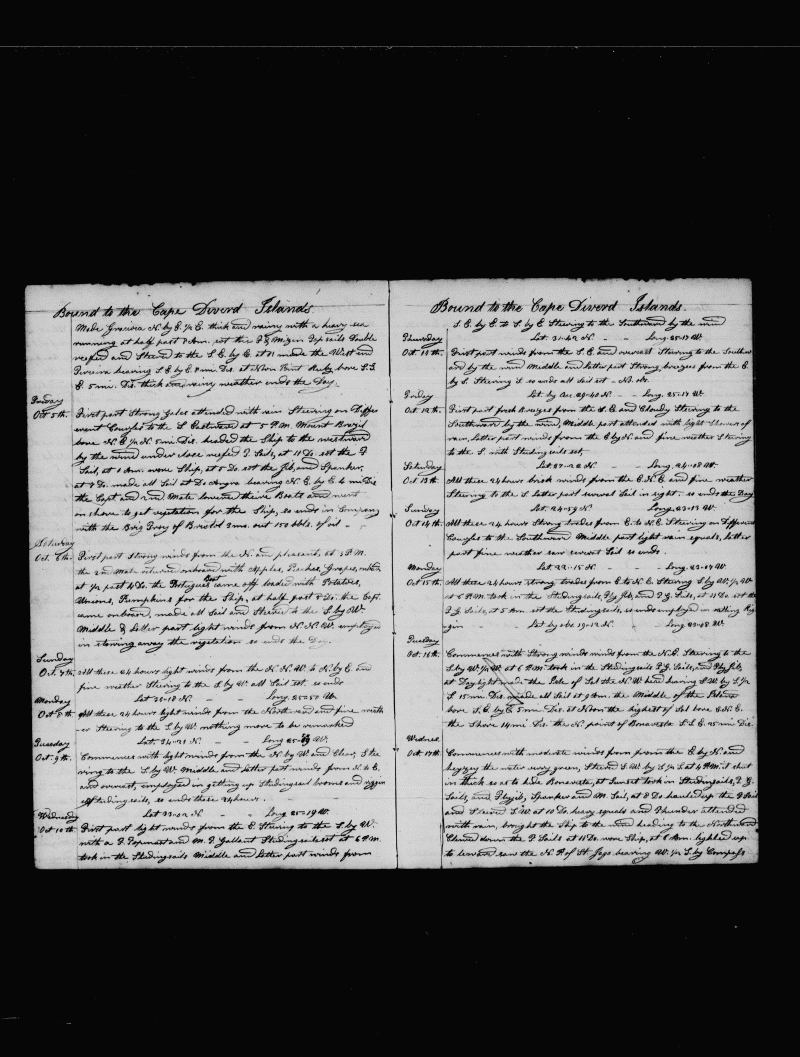 Bound to the Cape Diverd Islands.
Made Graciosa N. by E. ½ E. thick and rainy with a heavy sea
running at half past 7 Am. set the F & Mizen Top sails Double
reefed and Steered to the S. E. by E. at 11 made the West end
bearing S. E. by E. Dis. at Noon Point bore S.
E. 5 mi. Dis. thick and rainy weather ends the Day.
Friday
Oct 5th. First part Strong Gales attended with rain Steering on Diffe
erent Courses to the S. Eastward at 5 P.M. Mount Brazil
bore N. E. ½ N. 5 mi. Dis. headed the Ship to the westward
by the wind under close reefed T. Sails, at 11 Do. set the F
Sail, at 1 Am. wore Ship, at 5 Do. set the Jib, and Spanker,
at 7 Do. made all Sail at Do Angra bearing N. E. by E. 6 mi Dis
the Capt and 2nd. Mate lowered theire Boats and went
on shore to get vegetation for the Ship, so ends in Company
with the Brig of Bristol 2 ms. out 150 bbls. of oil -
Saturday
Oct. 6th. First part Strong winds from the N. and pleasant, at 3 P.M.
the 2nd Mate returned onboard with Apples, Peaches, Grapes,
at ½ past 4 Do. the Portugues Boat came off loaded with Potatoes,
Unions, Pumpkins for the Ship, at half past 8 Do. the Capt.
came onboard, made all Sail and Steered to the S. by W.
Middle & Latter part light winds from N. N. W. employed
in stowing away the vegetation so ends the Day.
Sunday
Oct. 7th. All these 24 hours light winds from the N. N. W. to N. by E. and
fine weather Steering to the S. by W. all Sail set. so ends
Monday Lat 36-18 N. - Long. 25-50 W.
Oct 8th. All these 24 hours light winds from the North-ward and fine weath
-er Steering to the S. by W. nothing more to be remarked
Tuesday Lat. 34-21 N. - Long 25- W.
Oct. 9th. Commences with light winds from the N. by W. and Clear, Stee
ring to the S. by W. Middle and latter part winds from N. to E.
and overcast, employed in getting up Studingsail booms and riggin
Studing sails, so ends these 24 hours.
Wednesday Lat 33-02 N. - Long 25-19 W.
Oct 10th. First part light winds from the E. Stering to the S. by W.
with a F. Topmast and M. T. Gallent Studingsails set at 6 P.M.
took in the Studingsails Middle and latter part winds from
Bound to the Cape Diverd Islands.
S. E. by E. to S. by E. Stering to the Southward by the wind
Thursday Lat. 31-42 N. - - Long. 25-17 W.
Oct 11th. First part winds from the S. E. and overcast Stering to the Southw
ard by the wind Middle and latter part strong breezes from the E.
by S. Stering so ends all sail set - No. obs.
Friday Lat. by Acc 29-40 N. - - Long. 25-17 W.
Oct 12th. First part fresh breezes from the S. E. and Cloudy Stering to the
Southward by the wind, Middle part attended with light Showers of
rain, Latter part winds from the E by N. and fine weather Stering
to the S. with Studingsails set,
Saturday Lat 27-20 N. - - Long. 24-18 W.
Oct 13th. All these 24 hours brisk winds from the E. N. E. and fine weather
Stering to the S. latter part several Sail in sight. so ends the Day
Sunday Lat. 24-59 N. Long. 23-13 W.
Oct 14th. All these 24 hours Strong trades from E. to N. E. Stering on Different
Courses to the Southward Middle part light rain squals, latter
part fine weather saw several Sail so ends.
Monday Lat 22-15 N. - - Long. 23-04 W.
Oct 15th. All these 24 hours strong trades from E. to N. E. Stering S. by W. ½ W.
at 6 P.M. took in the Studingsails, Flyg Jib, and T. G. Sails, at 11 Do. set the
T. G. Sails, at 5 Am. set the Studingsails, so ends employed in ratling Rig
ogin - Lat by obs 19-12 N. Long 23-48 W.
Tuesday
Oct. 16th. Commences with Strong winds from the N. E. Stering to the
S. by W. ½ W. at 6 P.M. took in the Studingsails T. G. Sails, and Flyg Jib,
at Day light made the Isle of Sal the N. W. head bearing S. W. by S. ½
S. 15 mi. Dis. made all Sail at 9 Am. the Middle of the Island
bore S. E. by E. 5 mi. Dis. at Noon the highest of Sal bore E. N. E.
the Shore 14 mi. Dis. the N. point of Bonavista S. S. E. 15 mi. Dis.
Wednes
Oct 17th. Commences with moderate winds from from the E. by N. and
heyzzy the water very green, Steerd S. W. by S. ½ S. at 4 P.M. it shut
in thick so as to hide Bonavista, at Sunset took in Studingsails, T. G.
Sails, and Flyjib, Spanker and M. Sail, at 8 Do. hauled up the F Sail
and Steerd S. W. at 10 Do. heavy squals and Thunder attended
with rain, brought the Ship to the wind heading to the Northward
Clewed down the T. Sails at 11 Do. wore Ship, at 6 Am. lighted up
to leward saw the N. P. of St. Jago bearing W. ½ S. by Compass